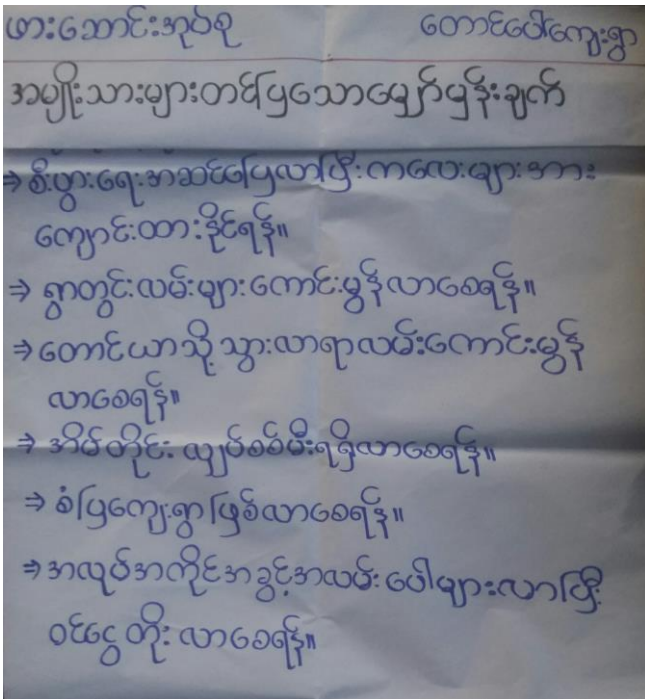 ဖားဆောင်းအုပ်စု တောင်ပေါ်ကျေးရွာ
အမျိုးသားများတင်ပြသောမျှော်မှန်းချက်
⇒ စီးပွားရေးအဆင်ပြေလာပြီးကလေးများအား
ကျောင်းထားနိုင်ရန်။
⇒ ရွာတွင်းလမ်းများကောင်းမွန်လာစေရန်။
⇒ တောင်ယာသို့သွားလာရာလမ်းကောင်းမွန်
လာစေရန်။
⇒ အိမ်တိုင်း လျှပ်စစ်မီးရရှိလာစေရန်။
⇒ စံပြကျေးရွာဖြစ်လာစေရန်။
⇒ အလုပ်အကိုင်အခွင့်အလမ်းပေါများလာပြီး
ဝင်ငွေတိုးလာစေရန်။